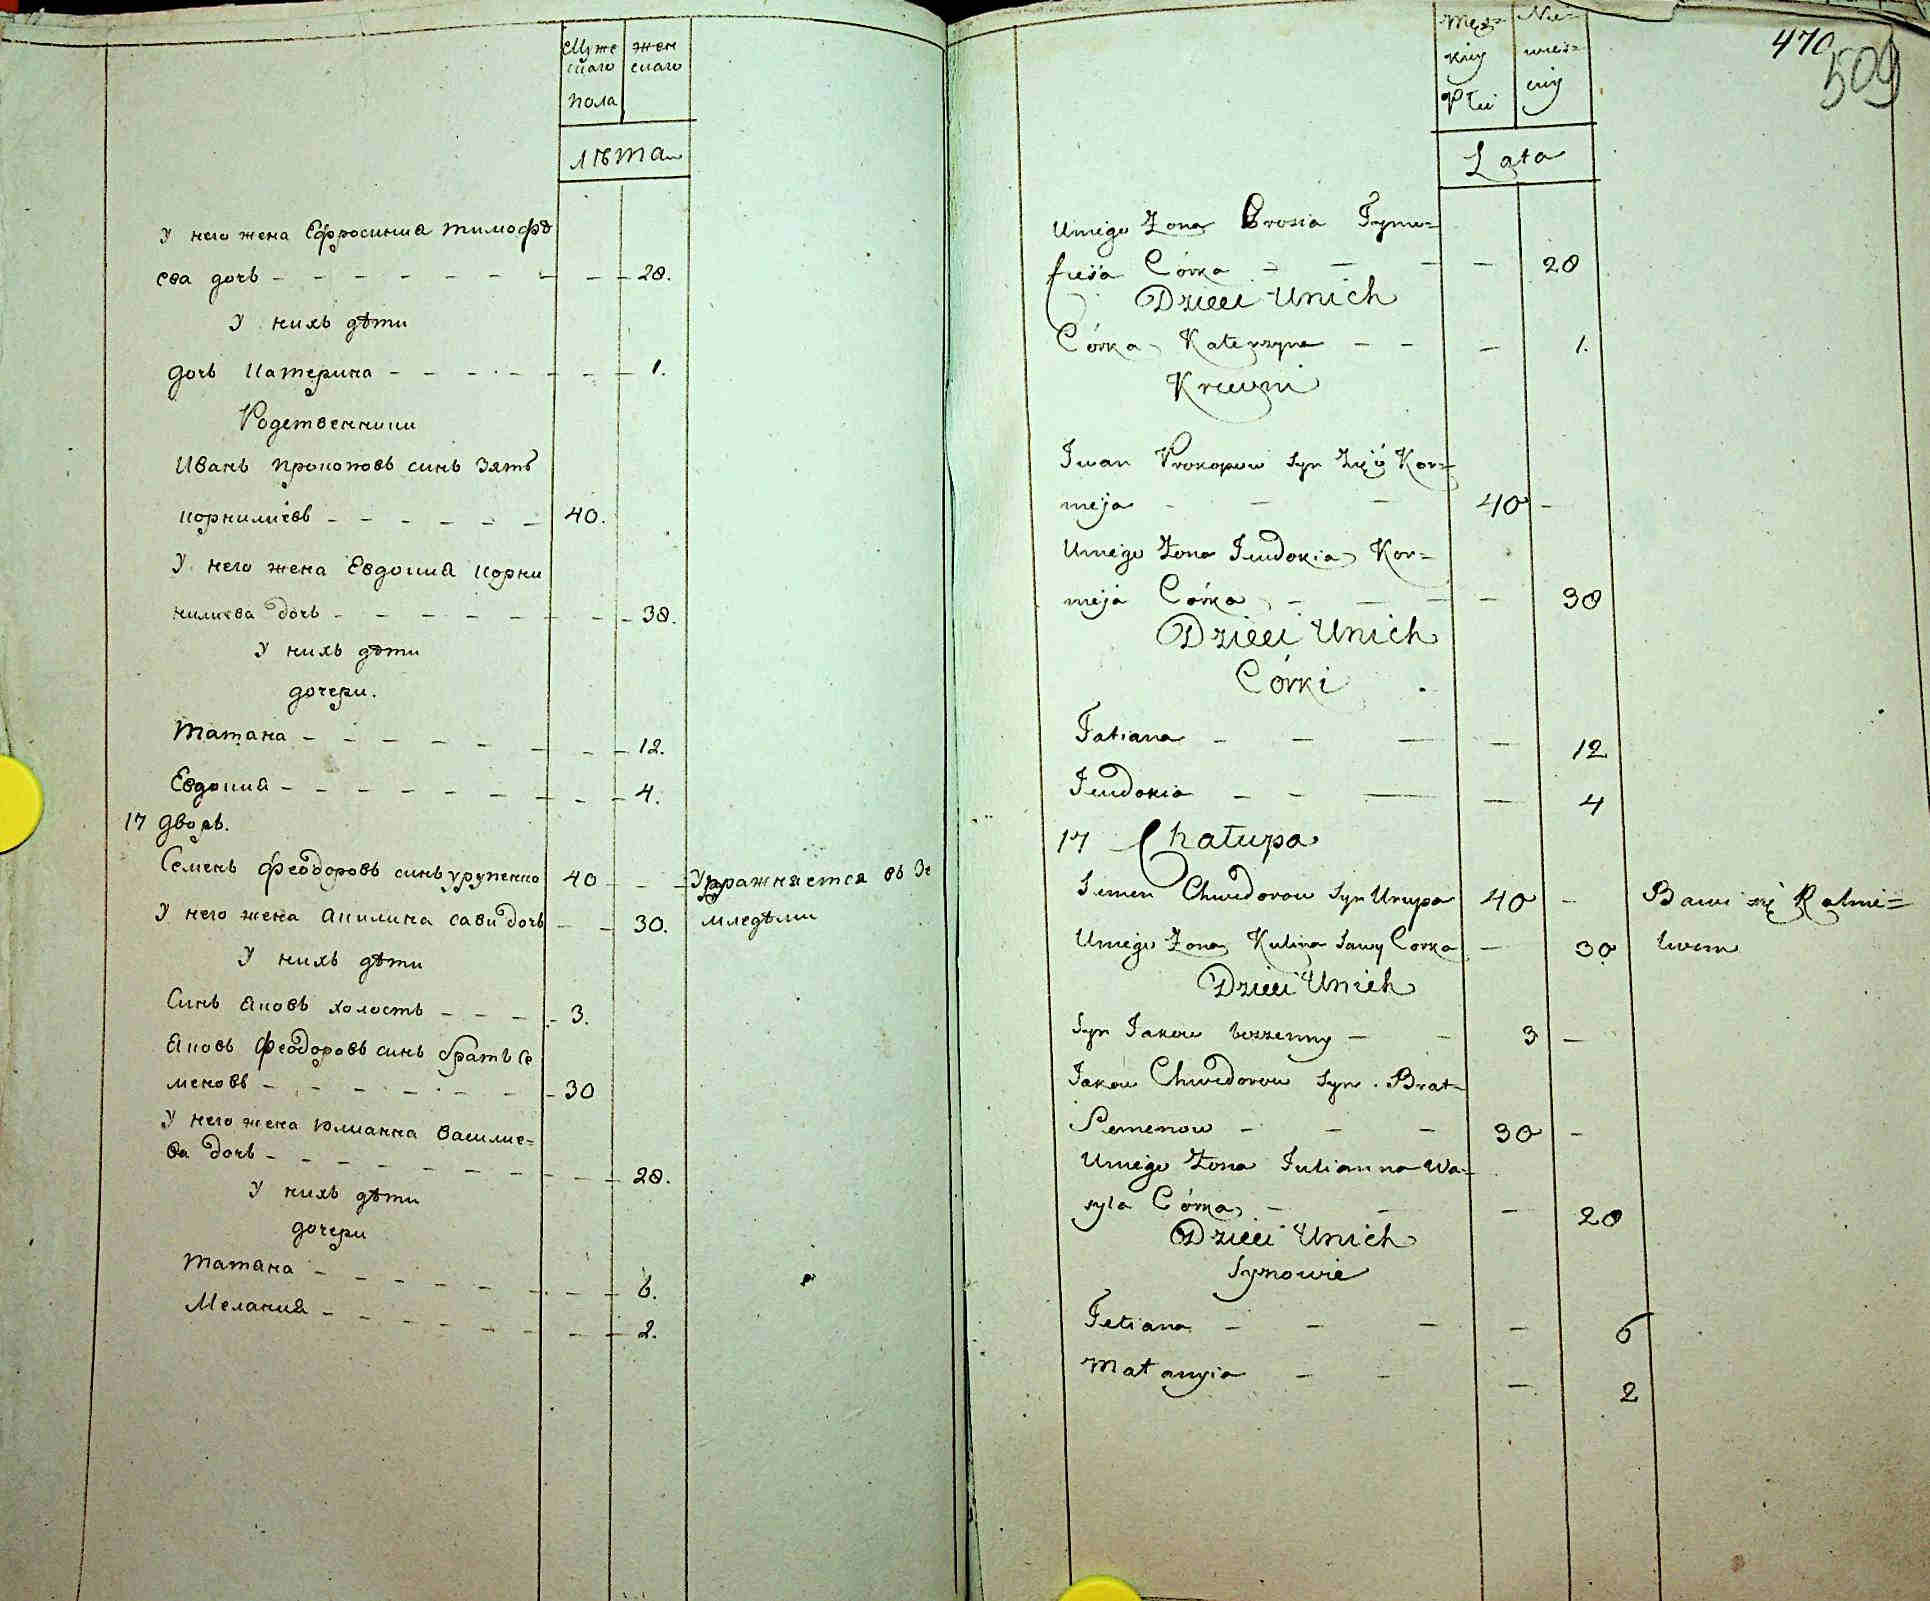 Муже жен
скаго скаго
пола
лѣта
У него жена Ефросиния Тимофѣ
ева дочь - - - - - - - - 20.
У нихъ дѣти
дочь Катерина - - - - - - - 1.
Родственники
Иванъ Прокоповъ синъ Зять
Корнилиевъ - - - - - - 40.
У него жена Евдокия Корни
нилиева дочь - - - - - - - - 30.
У нихъ дѣти
дочери.
Татяна - - - - - - - - 12.
Евдокия - - - - - - - - 4.
17 дворъ.
Семенъ Феодоровъ синъ Урупенко 40 - - Упражняется въ Зе
У него жена Акилина Сави дочь - - 30. мледѣлии
У нихъ дѣти
Синъ Яковъ холостъ - - - - 3.
Яковъ Феодоровъ синъ братъ Се
меновъ - - - - - - - 30
У него жена Юлианна Василие=
ва дочь - - - - - - - - - 20.
У нихъ дѣти
дочери
Татяна - - - - - - - - 6.
Мелания - - - - - - - - 2.
470
509
Męz= Nie=
kiey wies=
Płci ciey
Lata
Uniego Żona Prosia Tymo=
fieja Córka - - - - 20
Dzieci Unich
Córka Katerzyna - - - 1.
Krewni
Iwan Prokopow Syn Zięć Kor=
nieja - - - 40 -
Uniego Żona Jewdokia Kor=
nieja Córka - - - - 30
Dzieci Unich
Córki
Tatiana - - - - 12
Jewdokia - - - - 4
17 Chałupa
Semen Chwedorow Syn Urupa 40 - Bawi się Rolni=
Uniego Żona Kulina Sawy Corka - 30 twem
Dzieci Unich
Syn Jakow bezżenny - - 3 -
Jakow Chwedorow Syn Brat=
Semenow - - - 30 -
Uniego Żona Julianna Wa=
syla Córka - - - 20
Dzieci Unich
Synowie
Tetiana - - - - 6
Małanyia - - - 2